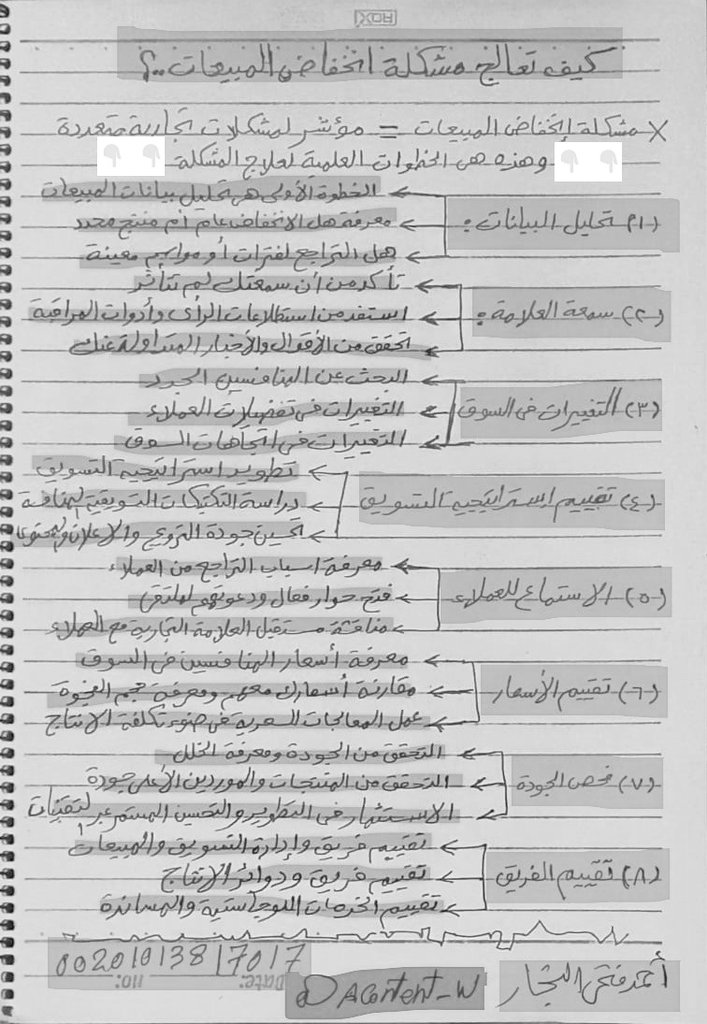 كيف تعالج مشكلة انخفاض المبيعات..؟
× مشكلة إنخفاض المبيعات = مؤشر لمشكلات تجارية متعددة
وهذه هى الخطوات العلمية لعلاج المشكلة
(١) تحليل البيانات:
الخطوة الأولى هى تحليل بيانات المبيعات
معرفة هل الانخفاض عام أم منتج محدد
هل التراجع لفترات أو مواسم معينة
(٢) سمعة العلامة:
تأكد من أن سمعتك لم تتأثر
استفد من استطلاعات الرأى وأدوات المراقبة
تحقق من الأقوال والأخبار المتداولة عنك
(٣) التغييرات فى السوق
البحث عن المنافسين الجدد
التغييرات فى تفضيلات العملاء
التغييرات فى اتجاهات السوق
(٤) تقييم استراتيجية التسويق
تطوير استراتيجية التسويق
دراسة التكتيكات التسويقية المنافسة
تحسين جودة الترويج والاعلان والمحتوى
(٥) الاستماع للعملاء
معرفة اسباب التراجع من العملاء
فتح حوار فعال ودعوتهم لملتقى
مناقشة مستقبل العلامة التجارية مع العملاء
(٦) تقييم الأسعار
معرفة أسعار المنافسين فى السوق
مقارنة أسعارك معهم ومعرفة حجم الفجوة
عمل المعالجات السعرية فى ضوء تكلفة الانتاج
(٧) فحص الجودة
التحقق من الجودة ومعرفة الخلل
التحقق من المنتجات والموردين الأعلى جودة
الاستثمار فى التطوير والتحسين المستمر عبر التقنيات
(٨) تقييم الفريق
تقييم فريق وإدارة التسويق والمبيعات
تقييم فريق ودوائر الإنتاج
تقييم الخدمات اللوجاستية والمساندة
أحمد فتحى النجار
@Acontent_W
00201013817017
Date:
no: